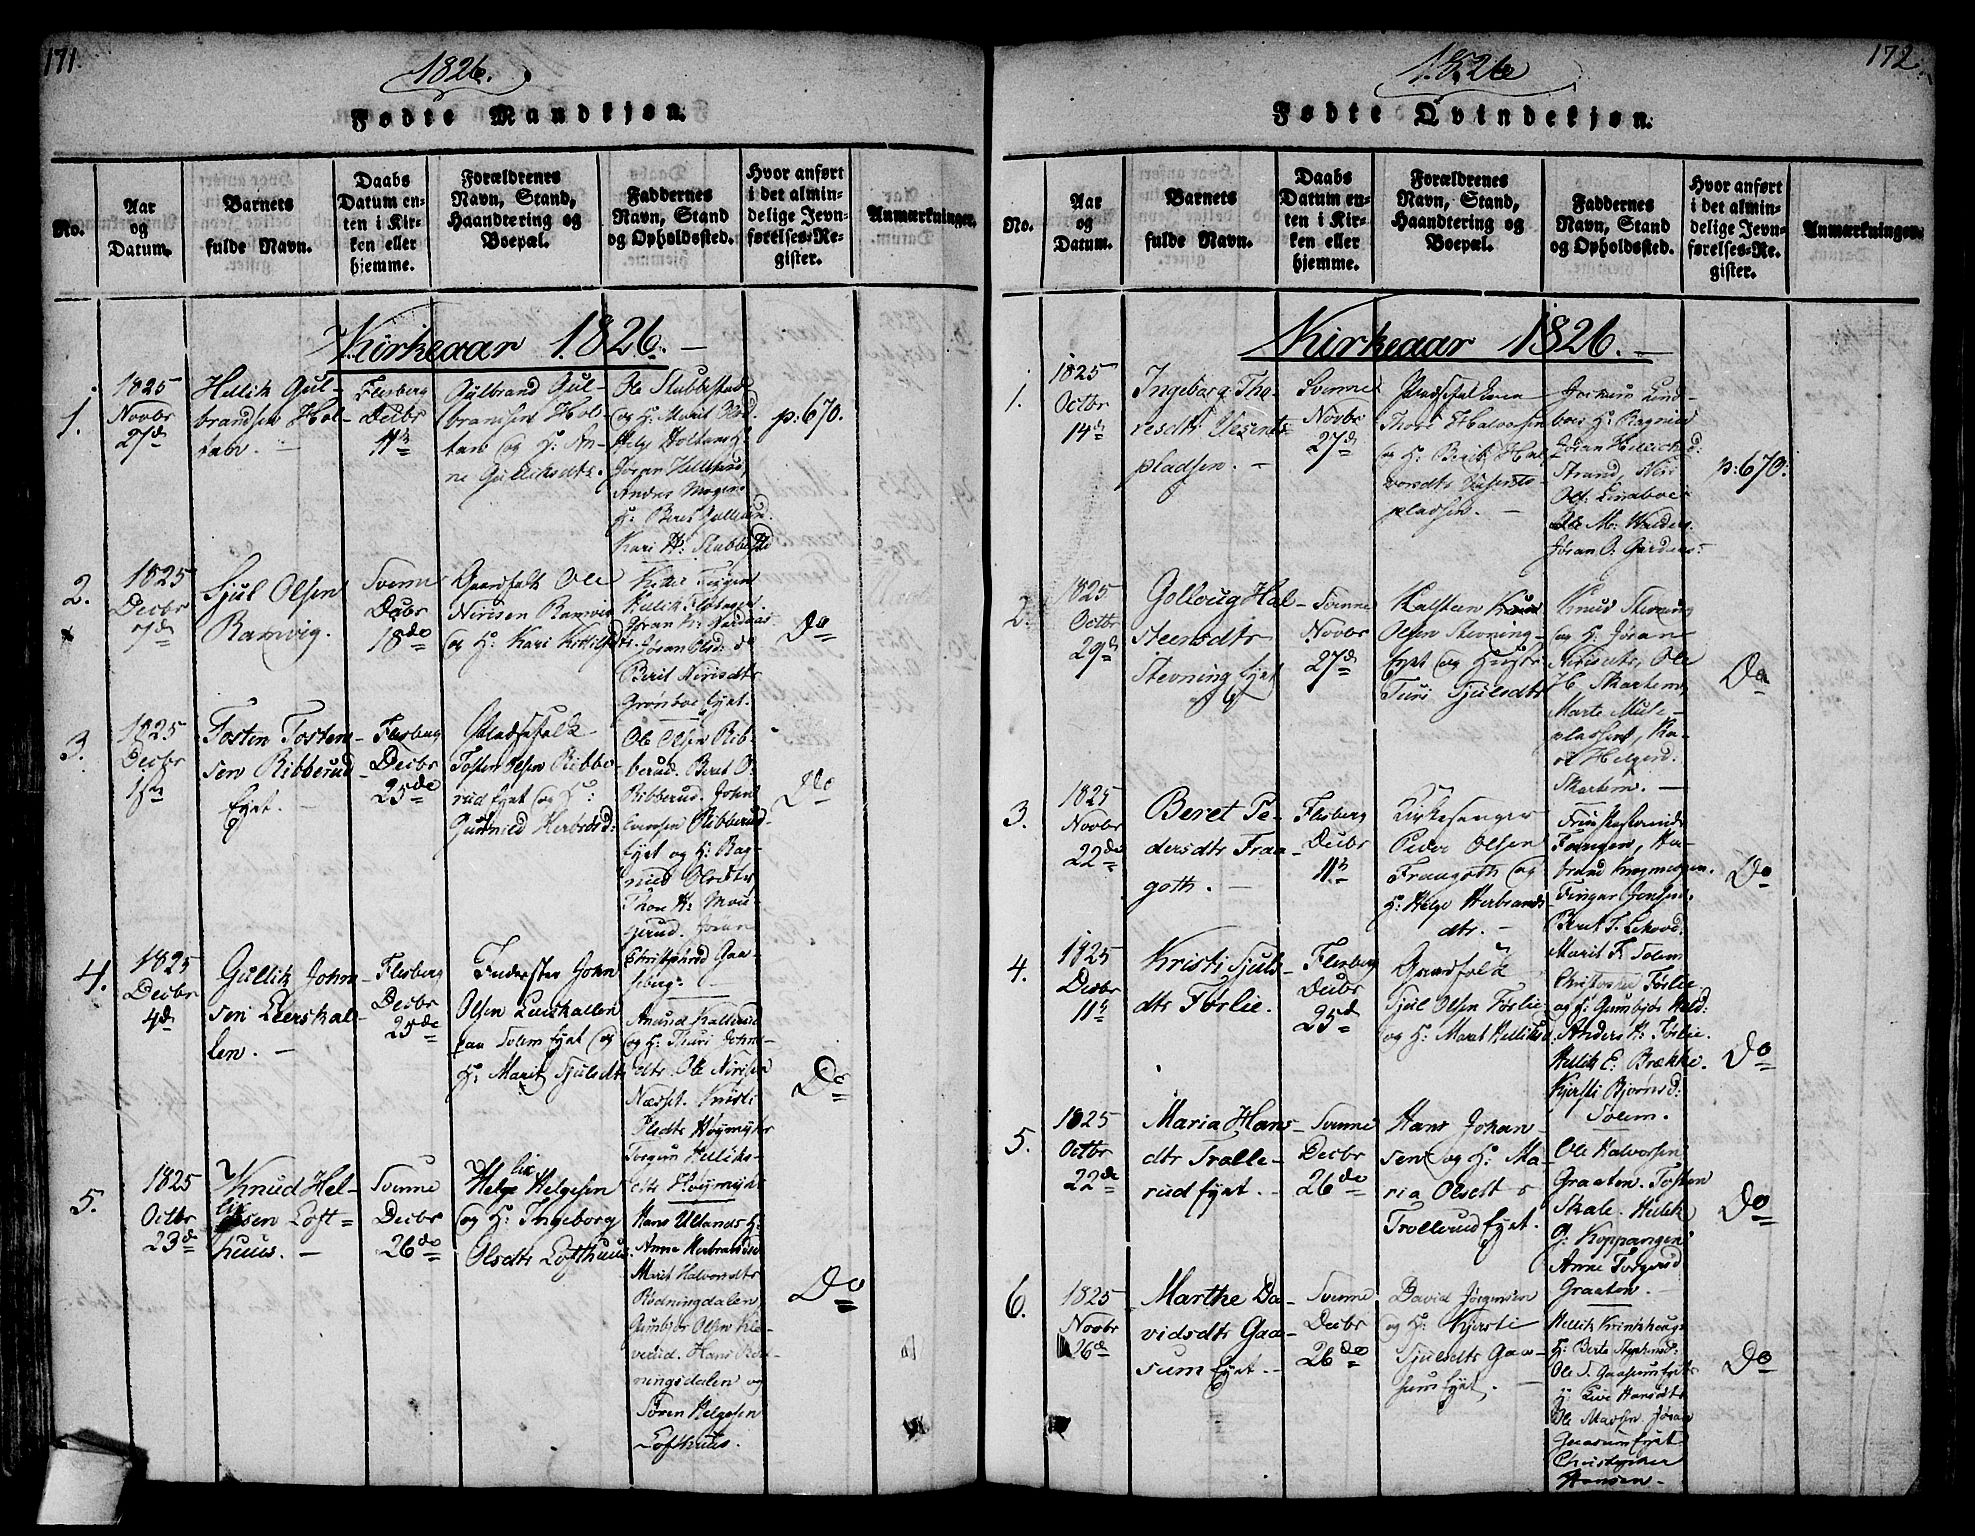 171.
1826.
Fødte Mandkjøn.
No.
Aar
og
Datum.
Barnets
fulde Navn.
Daabs
Datum en-
ten i Kir-
ken eller
hjemme.
Forældrenes
Navn, Stand,
Haandtering og
Boepæl.
Faddernes
Navn, Stand
og Opholdssted.
Hvor anført
i det almin-
delige Jevn-
førelses-Re-
gister.
Anmærkninger.
Kirkeaar 1826.
1.
1825
Novbr
27d
Hellik Gul-
brandsen Hol-
tabr.
Flesberg
Decbr
11te
Gulbrand Gul-
brandsen Hol-
tan og H: An-
ne Gulliksdtr.
Ole Stubbestad
og H: Marit
Helge Holtans H:
Joran
Anders Mogen
H: Beret
Kari H: Stubbestad
p: 670.
2.
1825
Decbr
7d
Sjul Olsen
Ramvig.
Svenne
Decbr
18de
Gaardfolk Ole
Nirisen Ramvig
og H: Kari Kittilsdtr.
Jøran Olsd: do
Berit Nirisdtr
Grønboe Eyet.
Do
3.
1825
Decbr
1ste
Tosten Tosten-
sen Ribberud
Eyet.
Flesberg
Decbr
25de
Pladsefolk
Tosten Olsen Ribbe-
rud Eyet og H:
Gunnild Herbrandsd:
Ole Olsen Rib-
berud. Beret O:
Ribberud. John
Evensen Ribberud-
Eyet og H: Rag-
nild Olsdtr
Thore H:
Jøran
Christophersd Gaa-
seberg.
Do
4.
1825
Decbr
4d
Gullik John-
sen Leerskal-
len.
Flesberg
Decbr
25de
Inderster John
Olsen Leerskallen
paa Solem Eyet og
H: Marit Sjulsdtr
Anund Kallerud
og H: Thuri Johns-
dtr. Ole Nirisen
Næsset. Kristi
Høymyhr
Torgun Helliks-
dtr Høymyhr
Do
5.
1825
Octbr
23de
Knud Hel-
gesen Loft-
huus.
Svenne
Decbr
26de
Helge Helgesen
og H: Ingeborg
Olsdtr Lofthuus.
Hans Ullands H:
Anne Herbrandsd
Marit Halvorsdtr
Rødningdalen
Gunbjør Olsen Kle-
verud. Hans Rød-
ningsdalen og
Søren Helgesen
Lofthuus.
Do
172.
1826
Fødte Qvindekjøn.
No.
Aar
og
Datum.
Barnets
fulde Navn.
Daabs
Datum en-
ten i Kir-
ken eller
hjemme.
Forældrenes
Navn, Stand,
Haandtering og
Boepæl.
Faddernes
Navn, Stand
og Opholdssted.
Hvor anført
i det almin-
delige Jevn-
førelses-Re-
gister.
Anmærkninger.
Kirkeaar 1826.
1.
1825
Octbr
14de
Ingeborg Tho-
resdtr Vesents-
pladsen.
Svenne
Novbr
27d
Pladsefolkene
Thore Halvorsen
og H: Berit Hal-
vorsdtr Vesents-
pladsen.
Jøran Hellichsd:
Strand, Niri
Ols: Lindboe
Ole M: Wolders.
Jøran O: Gardaas.
p: 670.
2.
1825
Octbr
29d
Golloug Hal-
steensdtr
Stevning Eyet
Svenne
Novbr
27d
Halsteen Knud
Olsen Stevning-
Eyet og Hustr:
Turi Sjulsdtr
Knud Stevning
og H: Jøran
Nirisdtr, Ole
H: Skartem,
Marte Mule-
pladsen, Ka-
ri Helgesd:
Skartem.
Do
3.
1825
Novbr
22de
Beret Pe-
dersdtr Fraa-
goth.
Flesberg
Decbr
11te
Kirkesanger
Peder Olsen
Fraagoth og
H: Helge Herbrands-
dtr.
Ingar Jensen.
Beret T. Lehovd.
Marit T. Solem
Do
4.
1825
Decbr
11te
Kristi Sjuls-
dtr Førlie.
Flesberg
Decbr
25de
Gaardfolk
Sjul Olsen Førlie
og H: Marit Helliksd.
Christopher Førlie
og H: Gunbjør Held:
Anders H: Førlie.
Hellik E: Brække.
Kjersti Bjørnsd:
Solem.
Do
5.
1825
Octbr
22de
Maria Hans-
dtr Trolle-
rud Eyet.
Svenne
Decbr
26de
Hans Johan-
sen og H: Ma-
ria Olsdtr
Trollerud Eyet.
Ole Halvorsen
Graaton. Tosten
Skale. Hellik
O: Koppangen
Anne Torgersd
Graaton.
Do
6.
1825
Novbr
26de
Marthe Da-
vidsdtr Gaa-
sum Eyet.
Svenne
Decbr
26de
David Jørgensen
og H: Kjersti
Sjulsdtr Gaa-
sum Eyet.
Hellik Krinthhaug
H: Berte Stephensd:
Ole S. Gaasum Eyet
H: Live Hansdtr
Ole Madsen Jøran
Gaasum Eyet
Christopher
Hansen.
Do